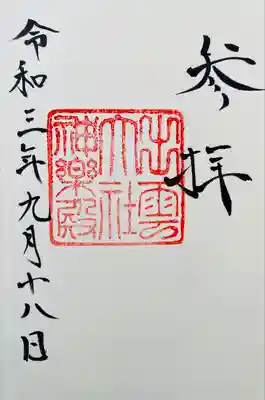 参拝
出雲
大社
神樂殿
令和三年九月十八日